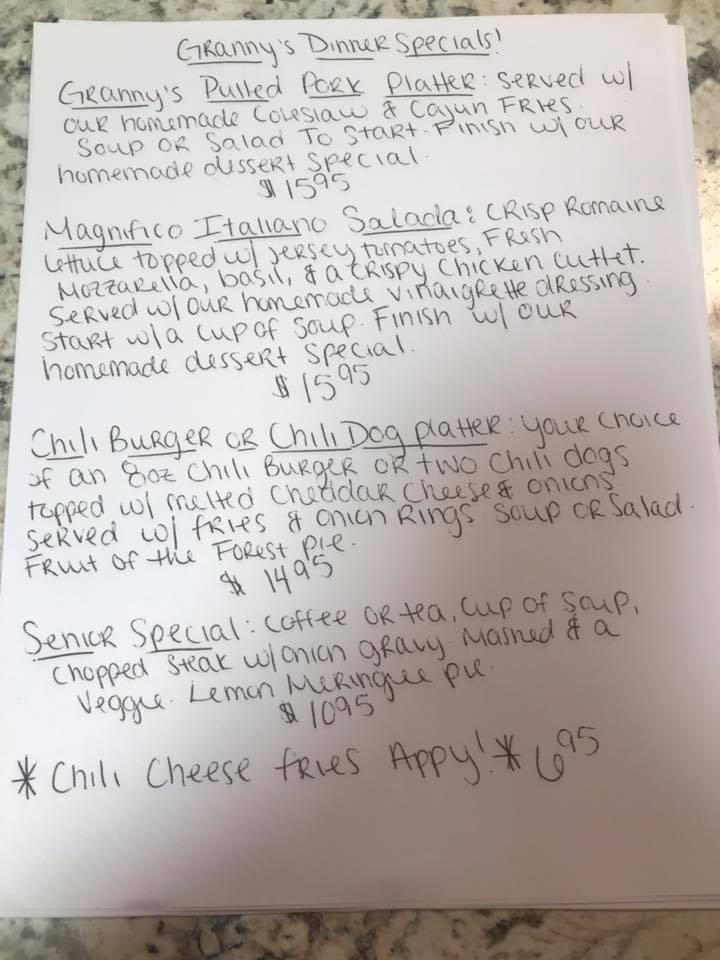 Granny's Dinner Specials!
Granny's Pulled Pork Platter: Served w/
our homemade Coleslaw & Cajun Fries.
Soup or Salad To Start. Finish w/ our
homemade dessert special.
$15 95
Magnifico Italiano Salada: Crisp Romaine
lettuce topped w/ jersey tomatoes, Fresh
Mozzarella, basil, & a crispy chicken cutlet.
Served w/ our homemade vinaigrette dressing.
Start w/ a cup of soup. Finish w/ our
homemade dessert special.
$15 95
Chili Burger or Chili Dog platter: your choice
of an 8oz Chili Burger or two chili dogs
topped w/ melted Cheddar Cheese & onions.
Served w/ fries & onion Rings. Soup or Salad.
Fruit of the Forest pie.
$14 95
Senior Special: Coffee or tea, cup of soup,
Chopped Steak w/ onion gravy. Mashed & a
Veggie. Lemon Meringue pie.
$10 95
* Chili Cheese fries Appy! * 6 95